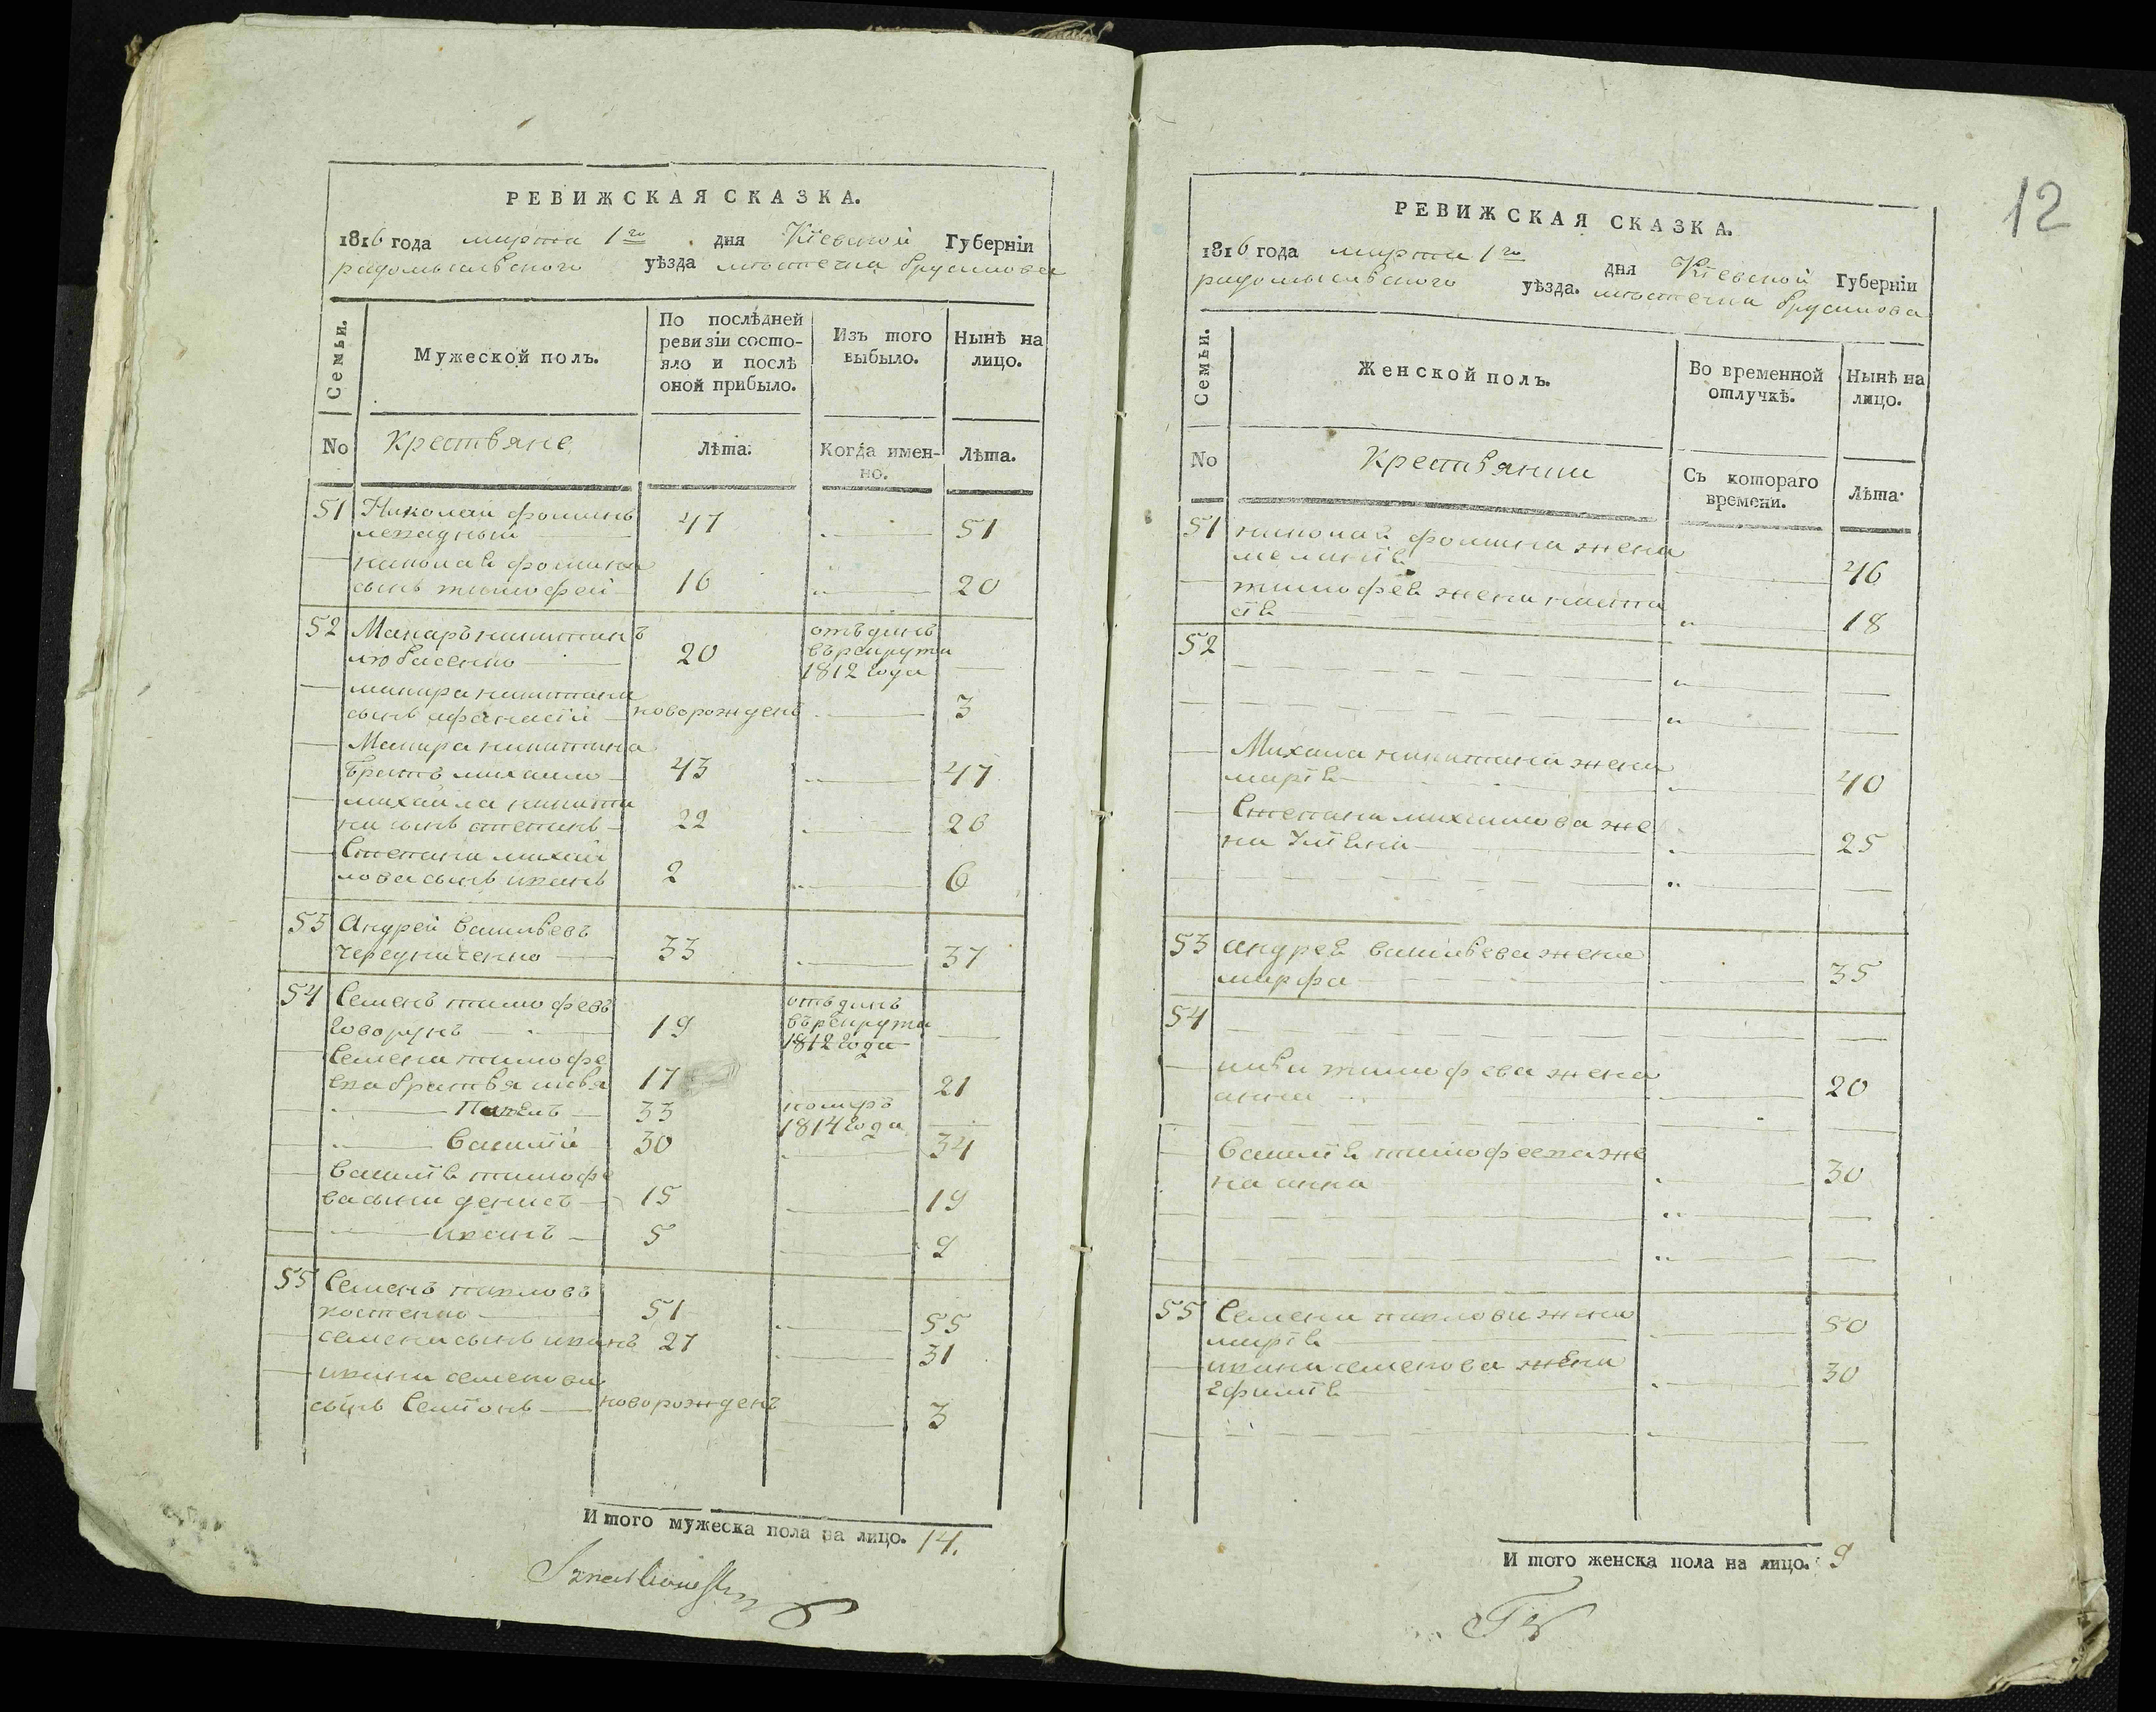 РЕВИЖСКАЯ СКАЗКА.
1816 года марта 1го дня Кіевской Губерніи
радомысльского уѣзда мѣстечка брусилова
Семьи.
Мужеской полъ.
По послѣдней ревизіи состояло и послѣ оной прибыло.
Изъ того выбыло.
Нынѣ на лицо.
No Крестьяне Лѣта. Когда именно. Лѣта.
51 Николай фоминъ
47 51
николая фомина
сынъ тимофей 16 20
52 Макаръ никитинъ отъданъ
любченко 20 въ рекруты
1812 года
макара никитина
сынъ афанасій новорожденъ 3
Макара никитина
братъ михаило 43 47
михайла никити
на сынъ степанъ 22 26
Степана михай
лова сынъ иванъ 2 6
53 Андрей васильевъ
чередниченко 33 37
54 Семенъ тимофевъ отъданъ
говорунъ 19 въ рекруты
1812 года
Семена тимофе
ева братья илья 17 21
Павелъ 33 померъ
1814 года
василій 30 34
василія тимофе
ва сыни денисъ 15 19
иванъ 5 9
55 Семенъ павловъ
костенко 51 55
семена сынъ иванъ 27 31
ивана семенова
сынъ Семіонъ новорожденъ 3
И того мужеска пола на лицо. 14.
12
РЕВИЖСКАЯ СКАЗКА.
1816 года марта 1го дня Кіевской Губерніи
радомысльского уѣзда. мѣстечка брусилова
Семьи.
Женской полъ.
Во временной отлучкѣ.
Нынѣ на лицо.
No Крестьянки Съ котораго времени. Лѣта.
51 николая фомина жена
меланія 46
тимофея жена наста
сія 18
52
Михаила никитина жена
марія 40
Степана михаилова же
на 25
53 андрея васильева жена
марфа 35
54
ильи тимофева жена
анна 20
василія тимофеева же
на анна 30
55 Семена павлова жена
марія 50
ивана семенова жена
ефимія 30
И того женска пола на лицо. 9